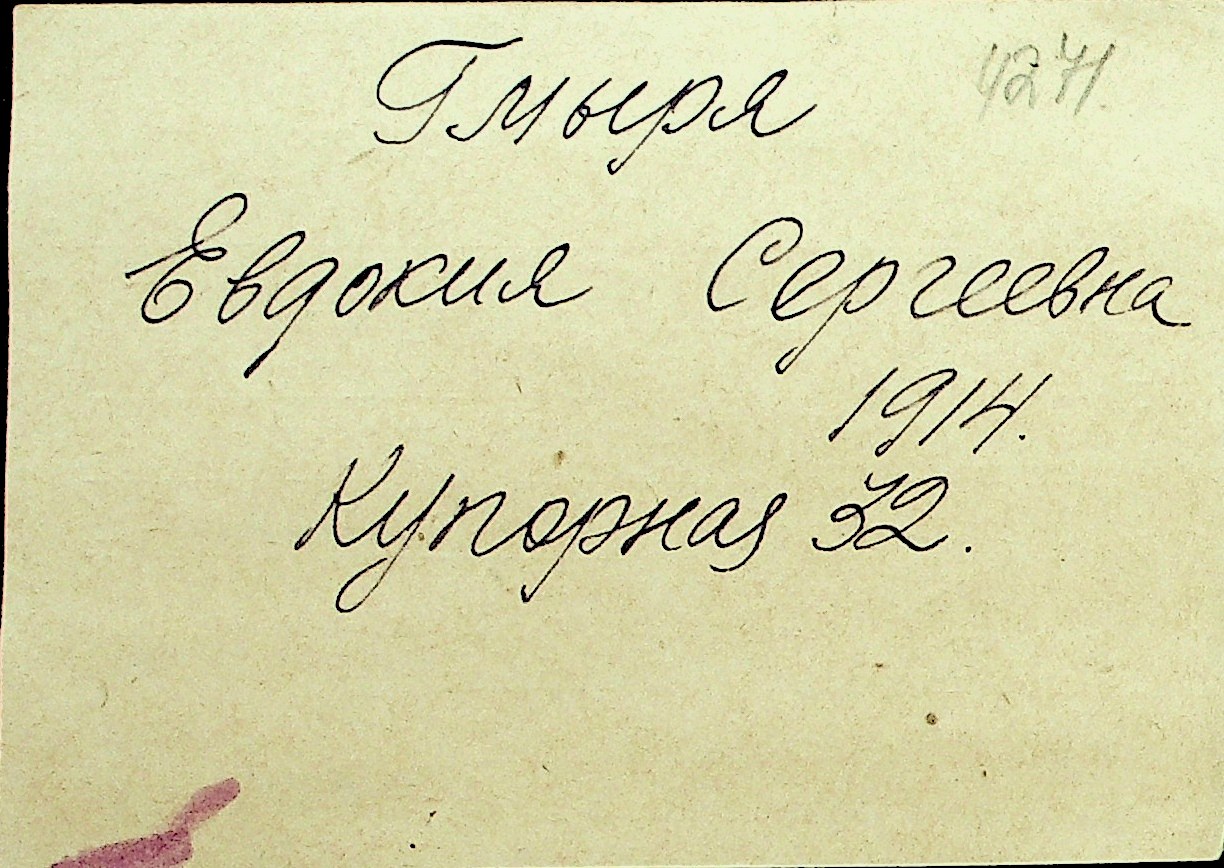 4271.
Гмыря
Евдокия Сергеевна
1914.
Купорная 32.